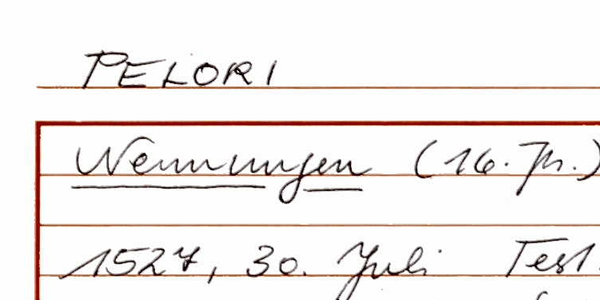 PELORI
Nennungen (16. Jh.)
1527, 30. Juli Test.